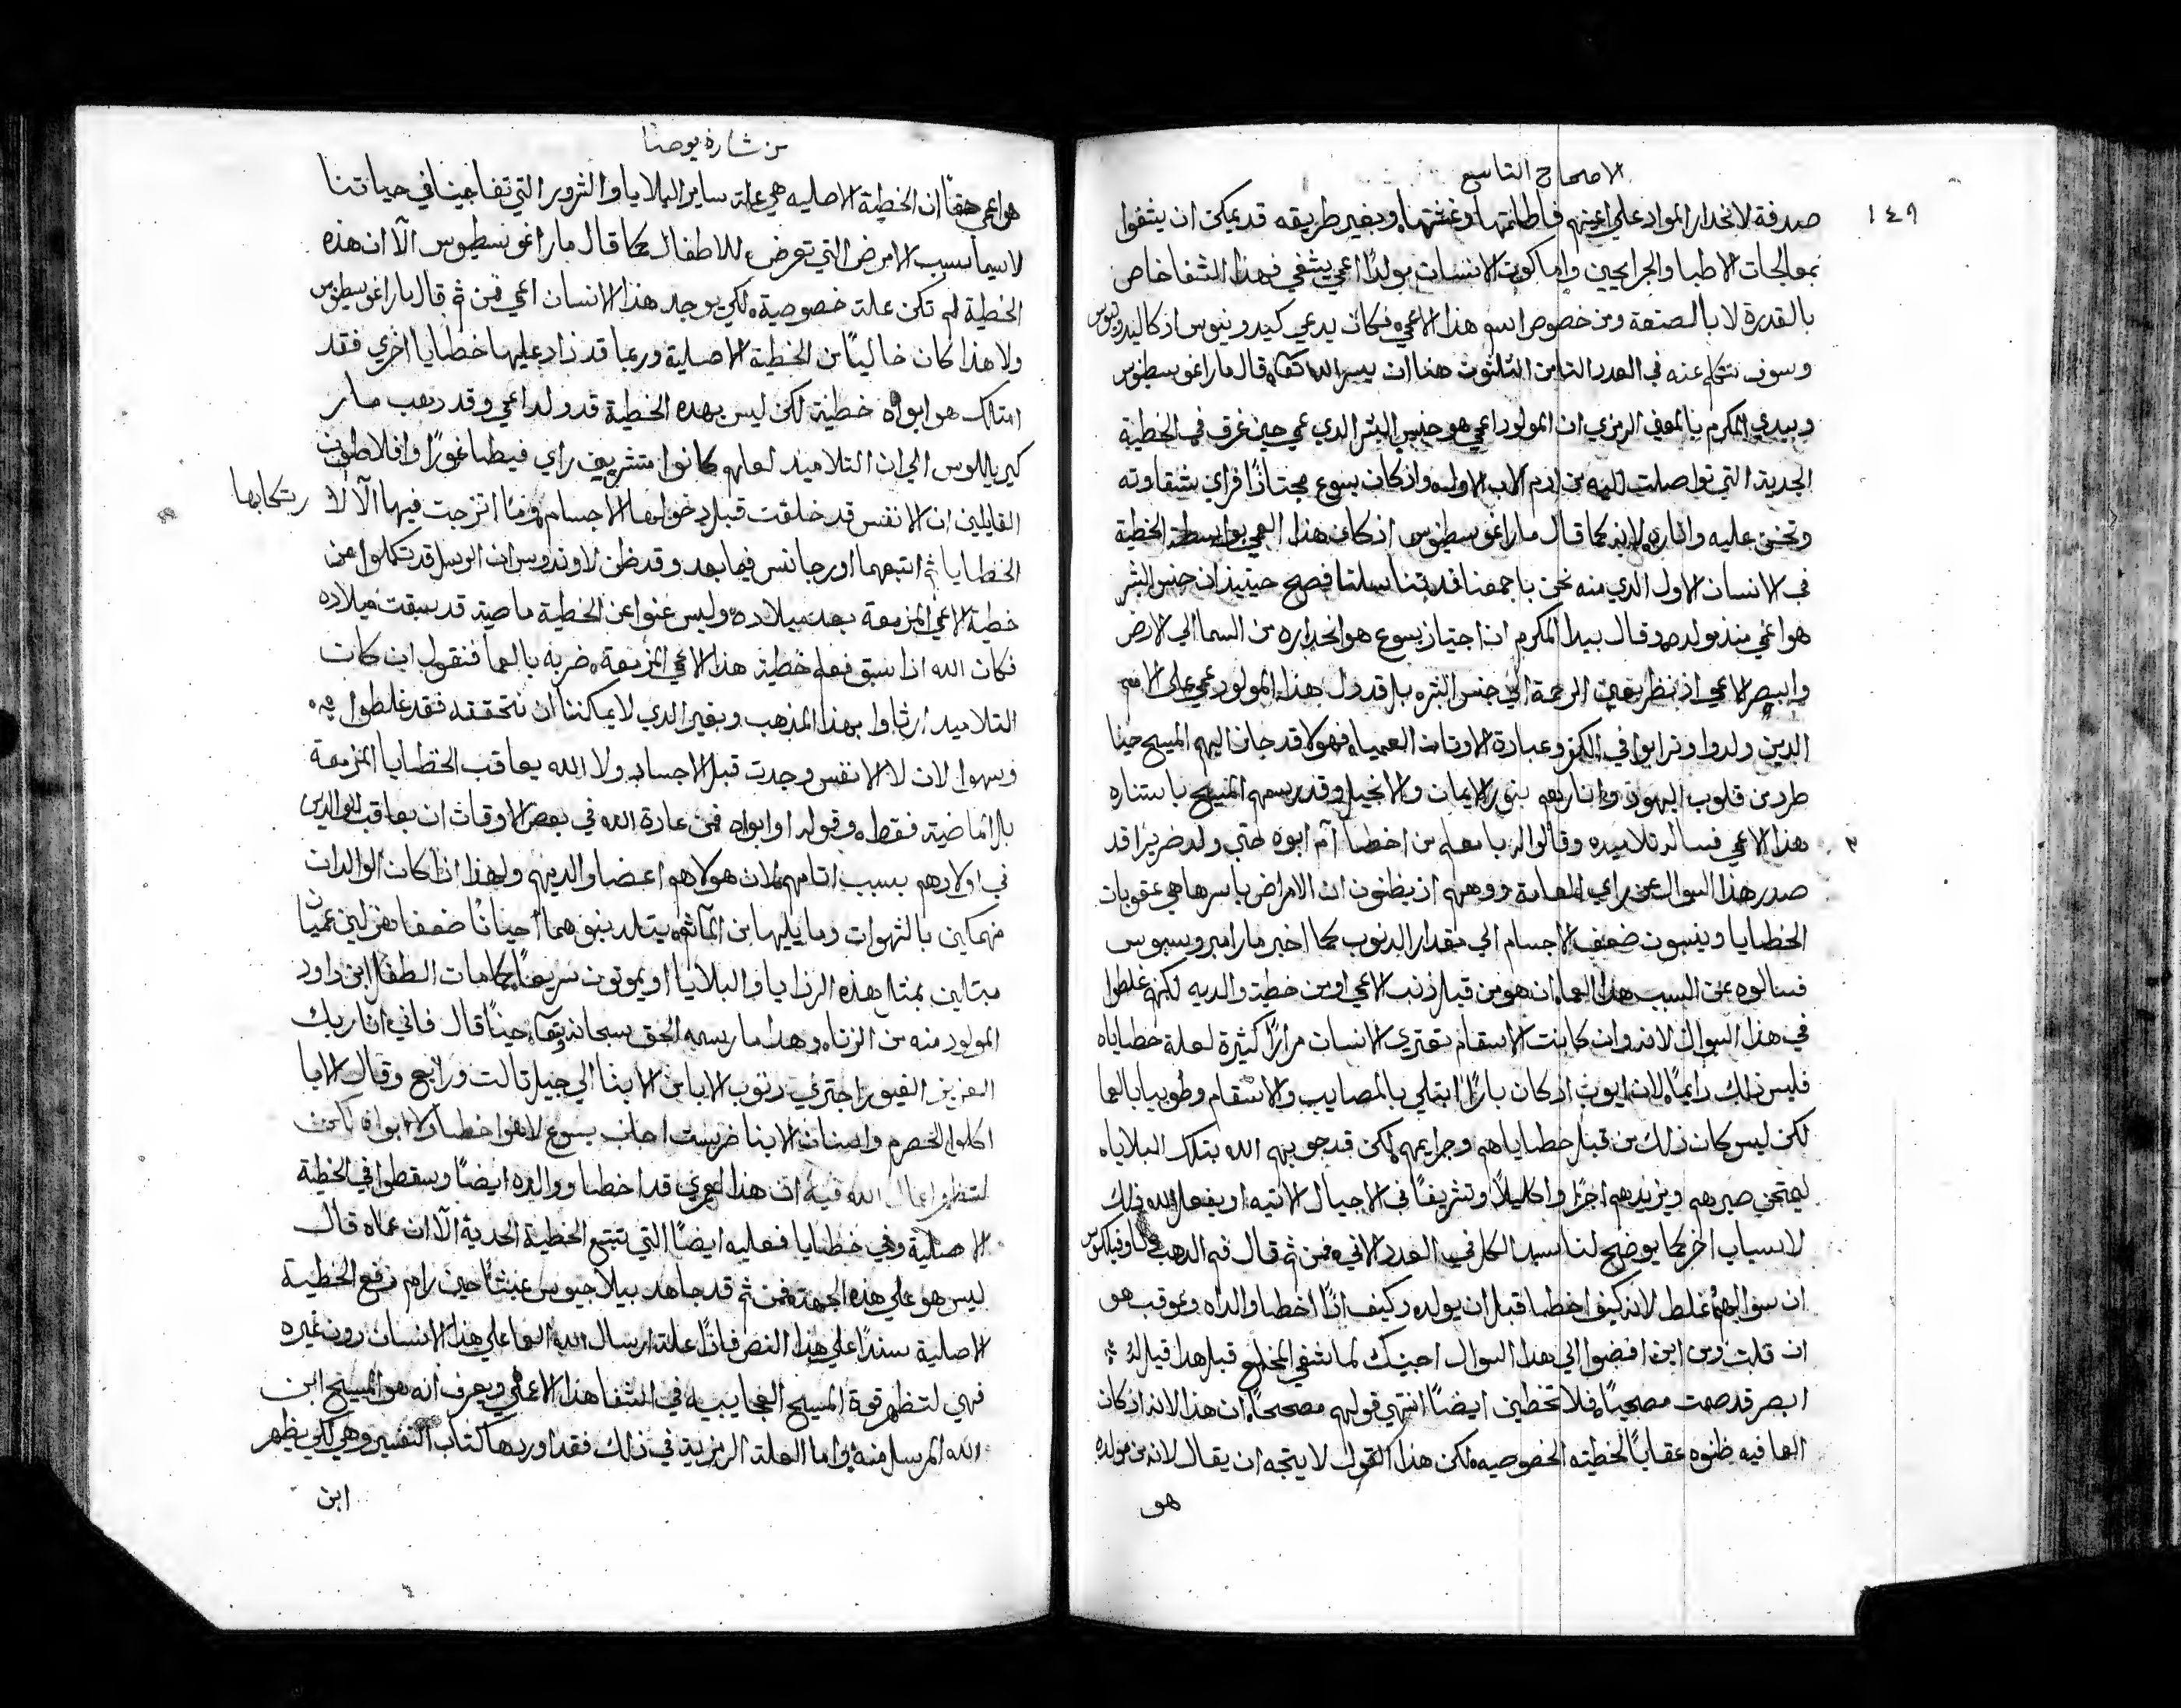 الاصحاح التاسع
١٤٩
صدفة لانحدار المواد على اعينهم فاظلمتها وغشتها وبغير طريقه قد يمكن ان يشفوا
بمعالجات الاطبا والجرايحيين واما كون الانسان مولدًا اعمي يشفي فهذا الشفا خاص
بالقدرة لا بالصنعة ومن خصوص اسم هذا الاعمي فكان يدعي كيدونيوس اذ كاليدونيوس
وسوف نتكلم عنه في العدد الثامن الثلثون هنا ان يسر الله تعالى قال ماراغوسطينوس
وبيدي المكرم بالمعني الرمزي ان المولود اعمي هو جنس البشر الذي عمي حين غرق في الخطية
الجدية التي تواصلت اليه من ادم الاب الاول واذ كان يسوع مجتازًا فراي شقاوته
وتحنن عليه واناره لانه كما قال ماراغوسطينوس اذ كان هذا العمي بواسطة الخطية
في الانسان الاول الذي منه نحن باجمعنا قد تناسلنا فصح حينيذ ان جنس البشر
هو اعمي منذ مولده وقال بيدا المكرم ان اجتياز يسوع هو انحداره من السما الي الارض
وابصر الاعمي اذ نظر بعين الرحمة الي جنس البشر بل قد دل هذا المولود عمي على الامم
الذين ولدوا وترابوا في الكفر وعبادة الاوثان العمياء فهولا قد حان اليهم المسيح حينا
طرد من قلوب اليهود وانارهم بنور الايمان والانجيل وقد رسمهم المسيح باستناره
٢ هذا الاعمي فساله تلاميذه وقالوا له يا معلم من اخطا أم ابوه حتي ولد ضريرًا قد
صدر هذا السوال عن راي العامة ووهمهم اذ يظنون ان الامراض باسرها هي عقوبات
الخطايا وينسبون ضعف الاجسام الي مقدار الذنوب كما اخبر مار امبروسيوس
فسالوه عن السبب هذا العما ان هو من قبل ذنب الاعمي او من خطية والديه لكنهم غلطوا
في هذا السوال لانه وان كانت الاسقام تعتري الانسان مرارًا كثيرة لعلة خطاياه
فليس ذلك دايمًا لان ايوب اذ كان بارًا ابتلي بالمصايب والاسقام وطوبيا بالعما
لكن ليس كان ذلك من قبل خطاياهم وجرايمهم لكن قد جربهم الله بتلك البلايا
ليمتحن صبرهم ويزيدهم اجرًا واكليلًا وتشريفًا في الاجيال الاتيه او يفعل الله ذلك
لاسباب اخر كما يوضح لنا سيد الكل في العدد الاتي فمن ثم قال فم الذهب
ان سوالهم غلط لانه كيف اخطا قبل ان يولد وكيف اذًا اخطا والداه وعوقب هو
ان قلت ومن اين افضوا الي هذا السوال اجبنك لما شفي المخلع قبل هذا قيل له
ابصر قد صرت مصحيًا فلا تخطين ايضًا انتهي قولهم مصححًا ان هذا الانه اذ كان
العا فيه ظنوه عقابًا لخطيته الخصوصيه لكن هذا القول لا يتجه ان يقال لانه من مولده
هو
من بشارة يوحنا
هو اعمي حقًا ان الخطية الاصليه هي علة ساير البلايا والشرور التي تفاجينا في حياتنا
لاسيما بسبب الامراض التي تعرض للاطفال كما قال ماراغوسطينوس الّا ان هذه
الخطية لم تكن علة خصوصية لكي يوجد هذا الانسان اعمي فمن ثم قال ماراغوسطينوس
ولا هذا كان خاليًا من الخطية الاصلية وربما قد زاد عليها خطايا اخري فقد
امتلك هو ابواه خطية لكن ليس بهده الخطية قد ولد اعمي وقد ذهب مار
كيرياللوس الي ان التلاميد لعلهم كانوا متشربين راي فيطاغورًا وافلاطون
القايلين ان الانفس قد خلقت قبل دخولها الاجسام وزمنًا اتزجت فيها الّا لا رتكابها
الخطايا ثم اتبعهما اورجانس فيما بعد وقد ظن لاوندوس ان الرسل قد تكلموا عن
خطية الاعمي المزمعة بعد ميلاده وليس عنوا عن الخطية ماضية قد سبقت ميلاده
فكان الله اذا سبق فعلم خطية هذا الاعمي المزمعة ضربه بالعما فنقول ان كان
التلاميد ارتاوا بهذا المذهب وبغير الذي لا يمكننا ان نتحققه فقد غلطوا فيه
وسهوا لان لا الانفس وجدت قبل الاجساد ولا الله يعاقب الخطايا المزمعة
بل الماضية فقط وقوله او ابواه فمن عادة الله في بعض الاوقات ان يعاقب الوالدين
في اولادهم بسبب اثامهم لان هولاء هم اعضا والديهم ولهذا اذا كان الوالدان
منهمكين بالشهوات وما يليها من المآثم يتولد بنوهما احيانًا ضعفا هزيلين عميانًا
مبتلين بمثل هذه الرزايا والبلايا او يموتون سريعًا كما مات الطفل ابن داود
المولود منه من الزنا وهذا ما رسمه الحق سبحانه تعالى حينًا قال فاني انا ربك
العزيز الغيور اجتزي دنوب الابا من الابنا الي جيل تالت ورابع وقال الابا
اكلوا الحصرم واسنان الابنا ضرست اجاب يسوع لا هو اخطا ولا ابواه لكن
لتظهر اعمال الله فيه ان هذا لعمري قد اخطا ووالده ايضًا وسقطوا في الخطية
الاصلية وفي خطايا فعليه ايضًا التي تتبع الخطية الجدية الّا ان عماه قال
ليس هو علي هذه الجهة فمن ثم قد جاهد بيلاجيوس عبثًا حين رام رفع الخطية
الاصلية سندًا علي هذا النص فاذًا علة ارسال الله العما علي هذا الانسان دون غيره
فهي لتظهر قوة المسيح العجايبيه في الشفا هذا الاعمي ويعرف انه هو المسيح ابن
الله المرسل منه واما العلة الرمزية في ذلك فقد اوردها كتاب التفسير وهي لكي يظهر
ابن